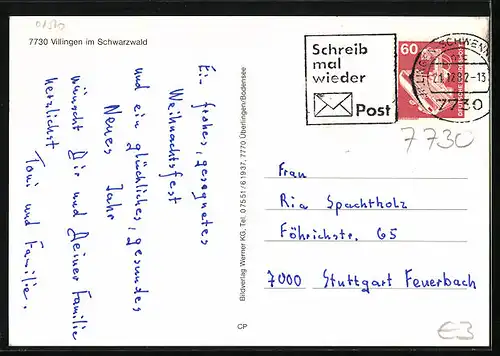 01570
7730 Villingen im Schwarzwald
Ein frohes, gesegnetes
Weihnachtsfest
und ein glückliches, gesundes
Neues Jahr
wünscht Dir und Deiner Familie
herzlichst
Toni und Familie.
Bildverlag Werner KG, Tel. 07551/61937, 7770 Überlingen/Bodensee
CP
Schreib
mal
wieder
Post
60
SCHWENN
21.12.82-13
7730
7730
Frau
Ria Spachtholz
Föhrichstr. 65
7000 Stuttgart Feuerbach
€3